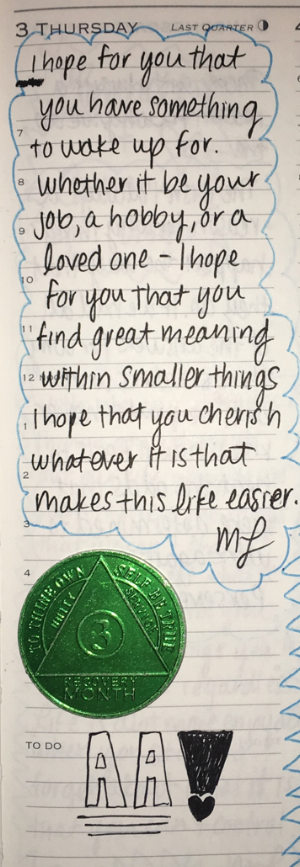 3 THURSDAY LAST QUARTER
I hope for you that
you have something
7
to wake up for.
8
whether it be your
9
job, a hobby, or a
loved one - I hope
10
for you that you
11
find great meaning
12
within smaller things
1
I hope that you cherish
whatever it is that
2
makes this life easier.
3
ML
4
TO THINE OWN SELF BE TRUE
UNITY SERVICE
3
RECOVERY
MONTH
TO DO
AA!